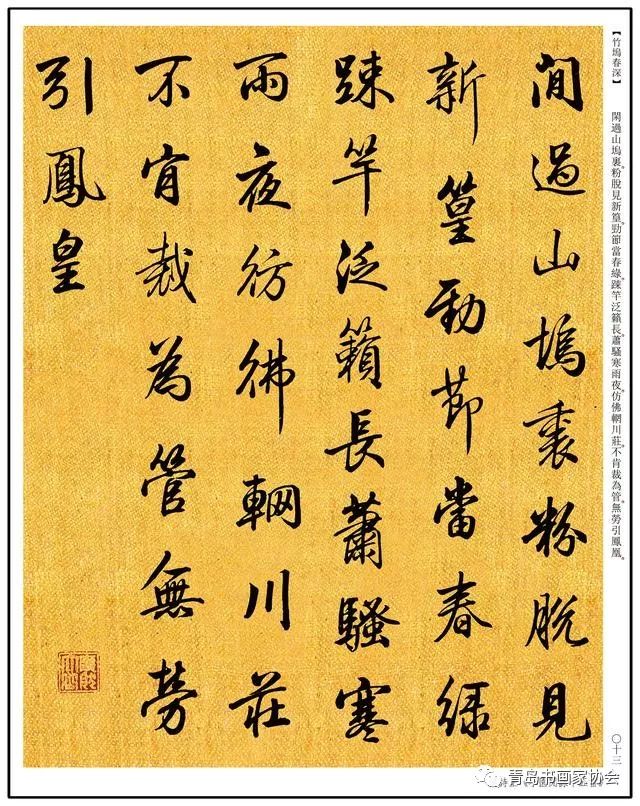 【竹塢春深】 閑過山塢裏。粉脫見新篁。勁節當春綠。踈竿泛籟長。蕭騷寒雨夜。仿佛輞川莊。不肯裁為管。無勞引鳳凰。
〇十三
閒過山塢裏粉脫見
新篁勁節當春綠
踈竿泛籟長蕭騷寒
雨夜彷彿輞川莊
不肯裁為管無勞
引鳳皇
青岛书画家协会